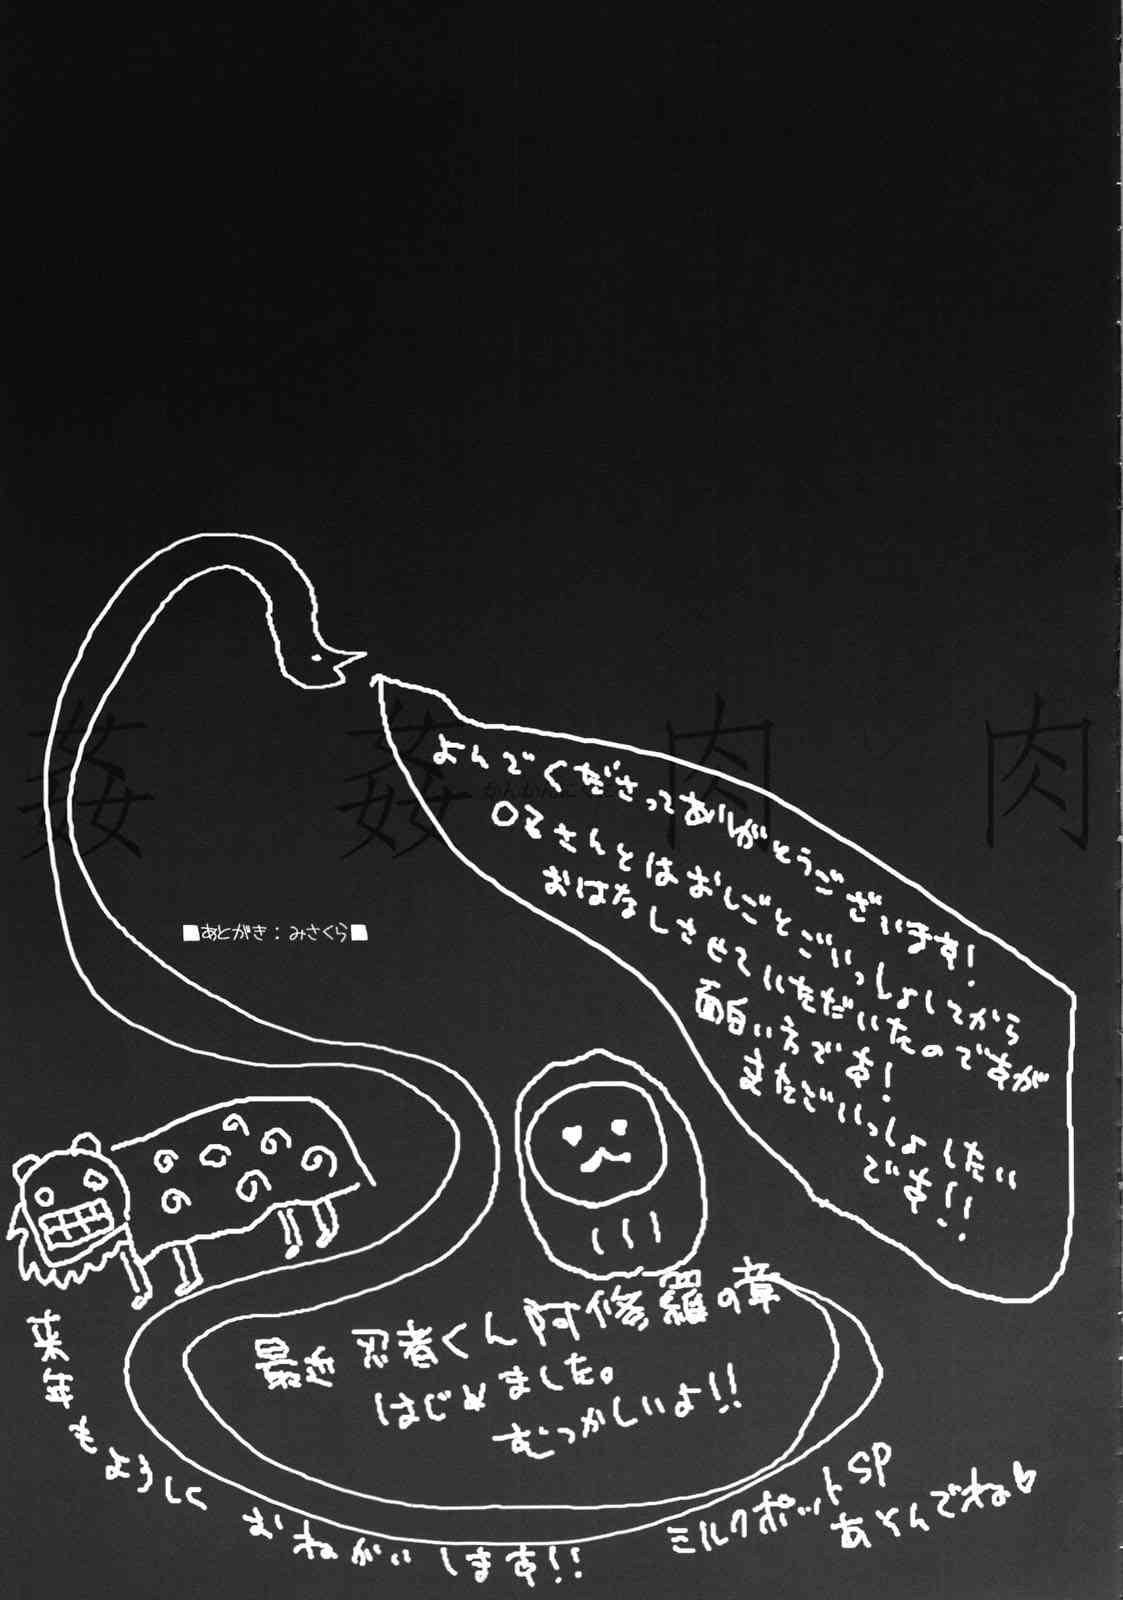 姦 姦 肉 肉
よんでくださってありがとうございます!
さんとはおしごとごいっしょしてから
おはなしさせていただいたのですが
面白い方です!
またごいっしょしたい
です!!
■あとがき：みさくら■
最近 忍者くん 阿修羅の章
はじめました。
むつかしいよ!!
来年もよろしく おねがいします!!
ミルクポットSP
あそんでね♡